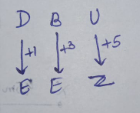 D B U
+1 +3 +5
E E Z